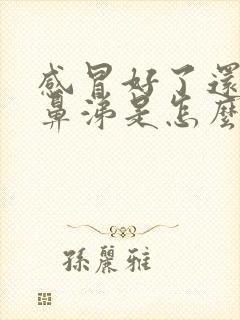 感冒好了還
鼻涕是怎麼
孫麗雅